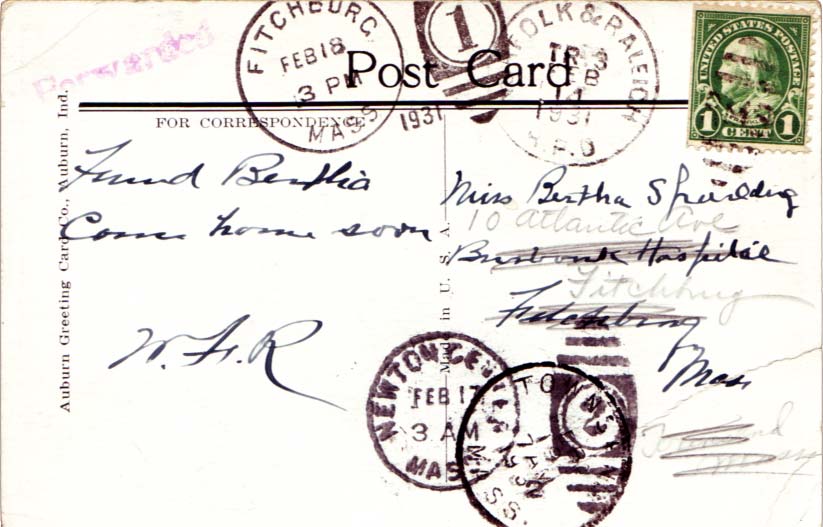 Forwarded
FITCHBURG, MASS.
FEB 18
3 PM
1931
1
NORFOLK & RALEIGH
TR 3
FEB
14
1931
R.P.O
UNITED STATES POSTAGE
1 CENT 1
Post Card
FOR CORRESPONDENCE
Friend Bertha
Come home soon
W. F. R
Auburn Greeting Card Co., Auburn, Ind.
Made in U. S. A.
Miss Bertha Spaulding
10 Atlantic Ave
Burbank Hospital
Fitchburg
Fitchburg
Mass
NEWTON CENTRE
FEB 17
3 AM
MASS
TOWNSEND
MASS.
Townsend
Mass